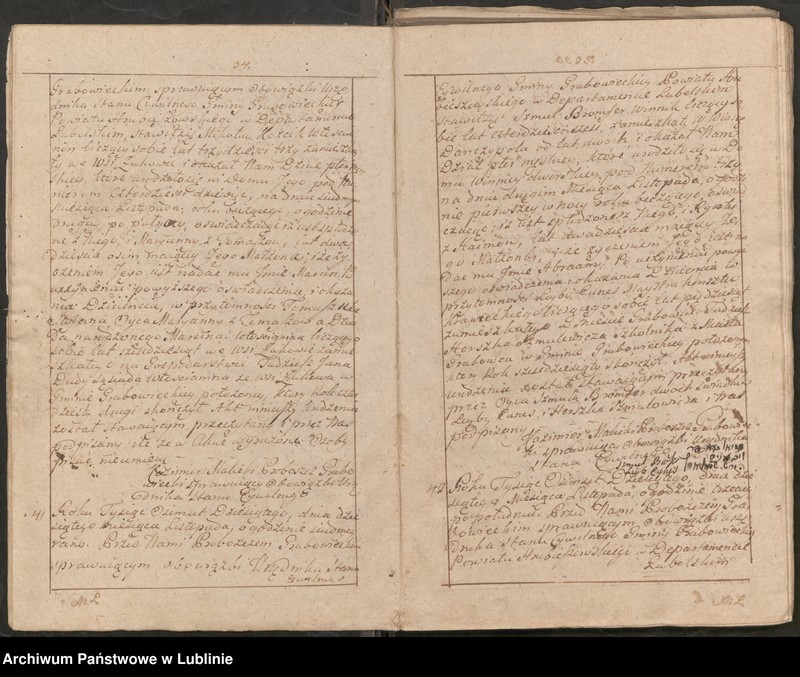 34.
Grabowieckim sprawuiącym Obowiązki Urzę
dnika Stanu Cywilnego Gminy Grabowieckiey
Powiatu Hrubieszowskiego w Departamencie
Lubelskim, Stawił się Mikołay Kościk Włościa
nin liczący sobie lat trzydzieści trzy zamieszka
ły we Wsi Żukowie i okazał Nam Dziecię płci
skiey, które urodziło się w Domu Jego pod Nu
merem Czterdzieści dziesięć, na dniu siódmym
Miesiąca Listopada, roku bieżącego, o godzinie
drugiey po północy, oświadczaiąc iż iest spłodzo
ne z Niego, i Maryanny z Tomaszów, lat dwa
dzieścia ośm maiący Jego Małżonki, i że ży
czeniem Jego iest nadać mu Imie Marcin. Po
uczynieniu powyższego oświadczenia, i okaza
niu Dziecięcia, w przytomności Tomasza
Oyca Maryanny z Tomaszów a Dzia
da narodzonego Marcina, Włościanina liczącego
sobie lat sześćdziesiąt we Wsi Żukowie zamie
szkałego na Gospodarstwie Tudzież Jana
Dudy Sąsiada Włościanina ze Wsi Żukowa w
Gminie Grabowieckiey położoney, który rok
dzieści drugi skończył. Akt ninieyszy Urodzenia
został Stawaiącym przeczytany i przez Nas
podpisany ile że w Akcie wyrażone Osoby
pisać nieumieią
Kazimierz Malicki Proboszcz Grabo
wiecki sprawuiący Obowiązki Urzę
dnika Stanu Cywilnego
41 Roku Tysiąc Ośmset Dziesiątego, dnia dzie
siątego Miesiąca Listopada, o godzinie siódmey
rano. Przed Nami Proboszczem Grabowieckim
sprawuiącym obowiązki Urzędnika Stanu
Cywilnego
35.
Cywilnego Gminy Grabowieckiey Powiatu Hru
bieszowskiego w Departamencie Lubelskim
Stawił się Szmul Bromfer Winnik liczący so
bie lat czterdzieści sześć, zamieszkały w Wsi
Dańczypolu od lat dwóch, i okazał Nam
Dziecię płci męskiey, które urodziło się w Do
mu Winnicy dworskiey pod Numerem trzy
na dniu drugim Miesiąca Listopada, o godzi
nie pierwszey w nocy roku bieżącego, oświad
czaiąc iż iest spłodzone z Niego, i Rywki
z Haimów, lat dwadzieścia maiącey Je
go Małżonki, i że życzeniem Jego iest na
dać mu Imie Abraam. Po uczynieniu powyż
szego oświadczenia i okazania Dziecięcia w
przytomności Leyby Eynes Maystra kunsztu
krawieckiego liczącego sobie lat pięćdziesiąt
zamieszkałego w Mieście Grabowcu Tudzież
Herszka Szmulowicza Szkolnika z Miasta
Grabowca w Gminie Grabowieckiey położonym
który Rok sześćdziesiąty skończył. Akt ninieyszy
Urodzenia został Stawaiącym przeczytany
przez Oyca Szmula Bromfer dwóch Świadków
Leyby Eynes, i Herszka Szmulowicza i Nas
podpisany
Kazimierz Malicki Proboszcz Grabowie
cki sprawuiący Obowiązki Urzędnika
Stanu Cywilnego
42 Roku Tysiąc Ośmset Dziesiątego, dnia dzie
siątego Miesiąca Listopada, o godzinie trzeciey
po południu. Przed Nami Proboszczem Gra
bowieckim sprawuiącym Obowiązki Urzę
dnika Stanu Cywilnego Gminy Grabowieckiey
Powiatu Hrubieszowskiego w Departamencie
Lubelskim
Archiwum Państwowe w Lublinie